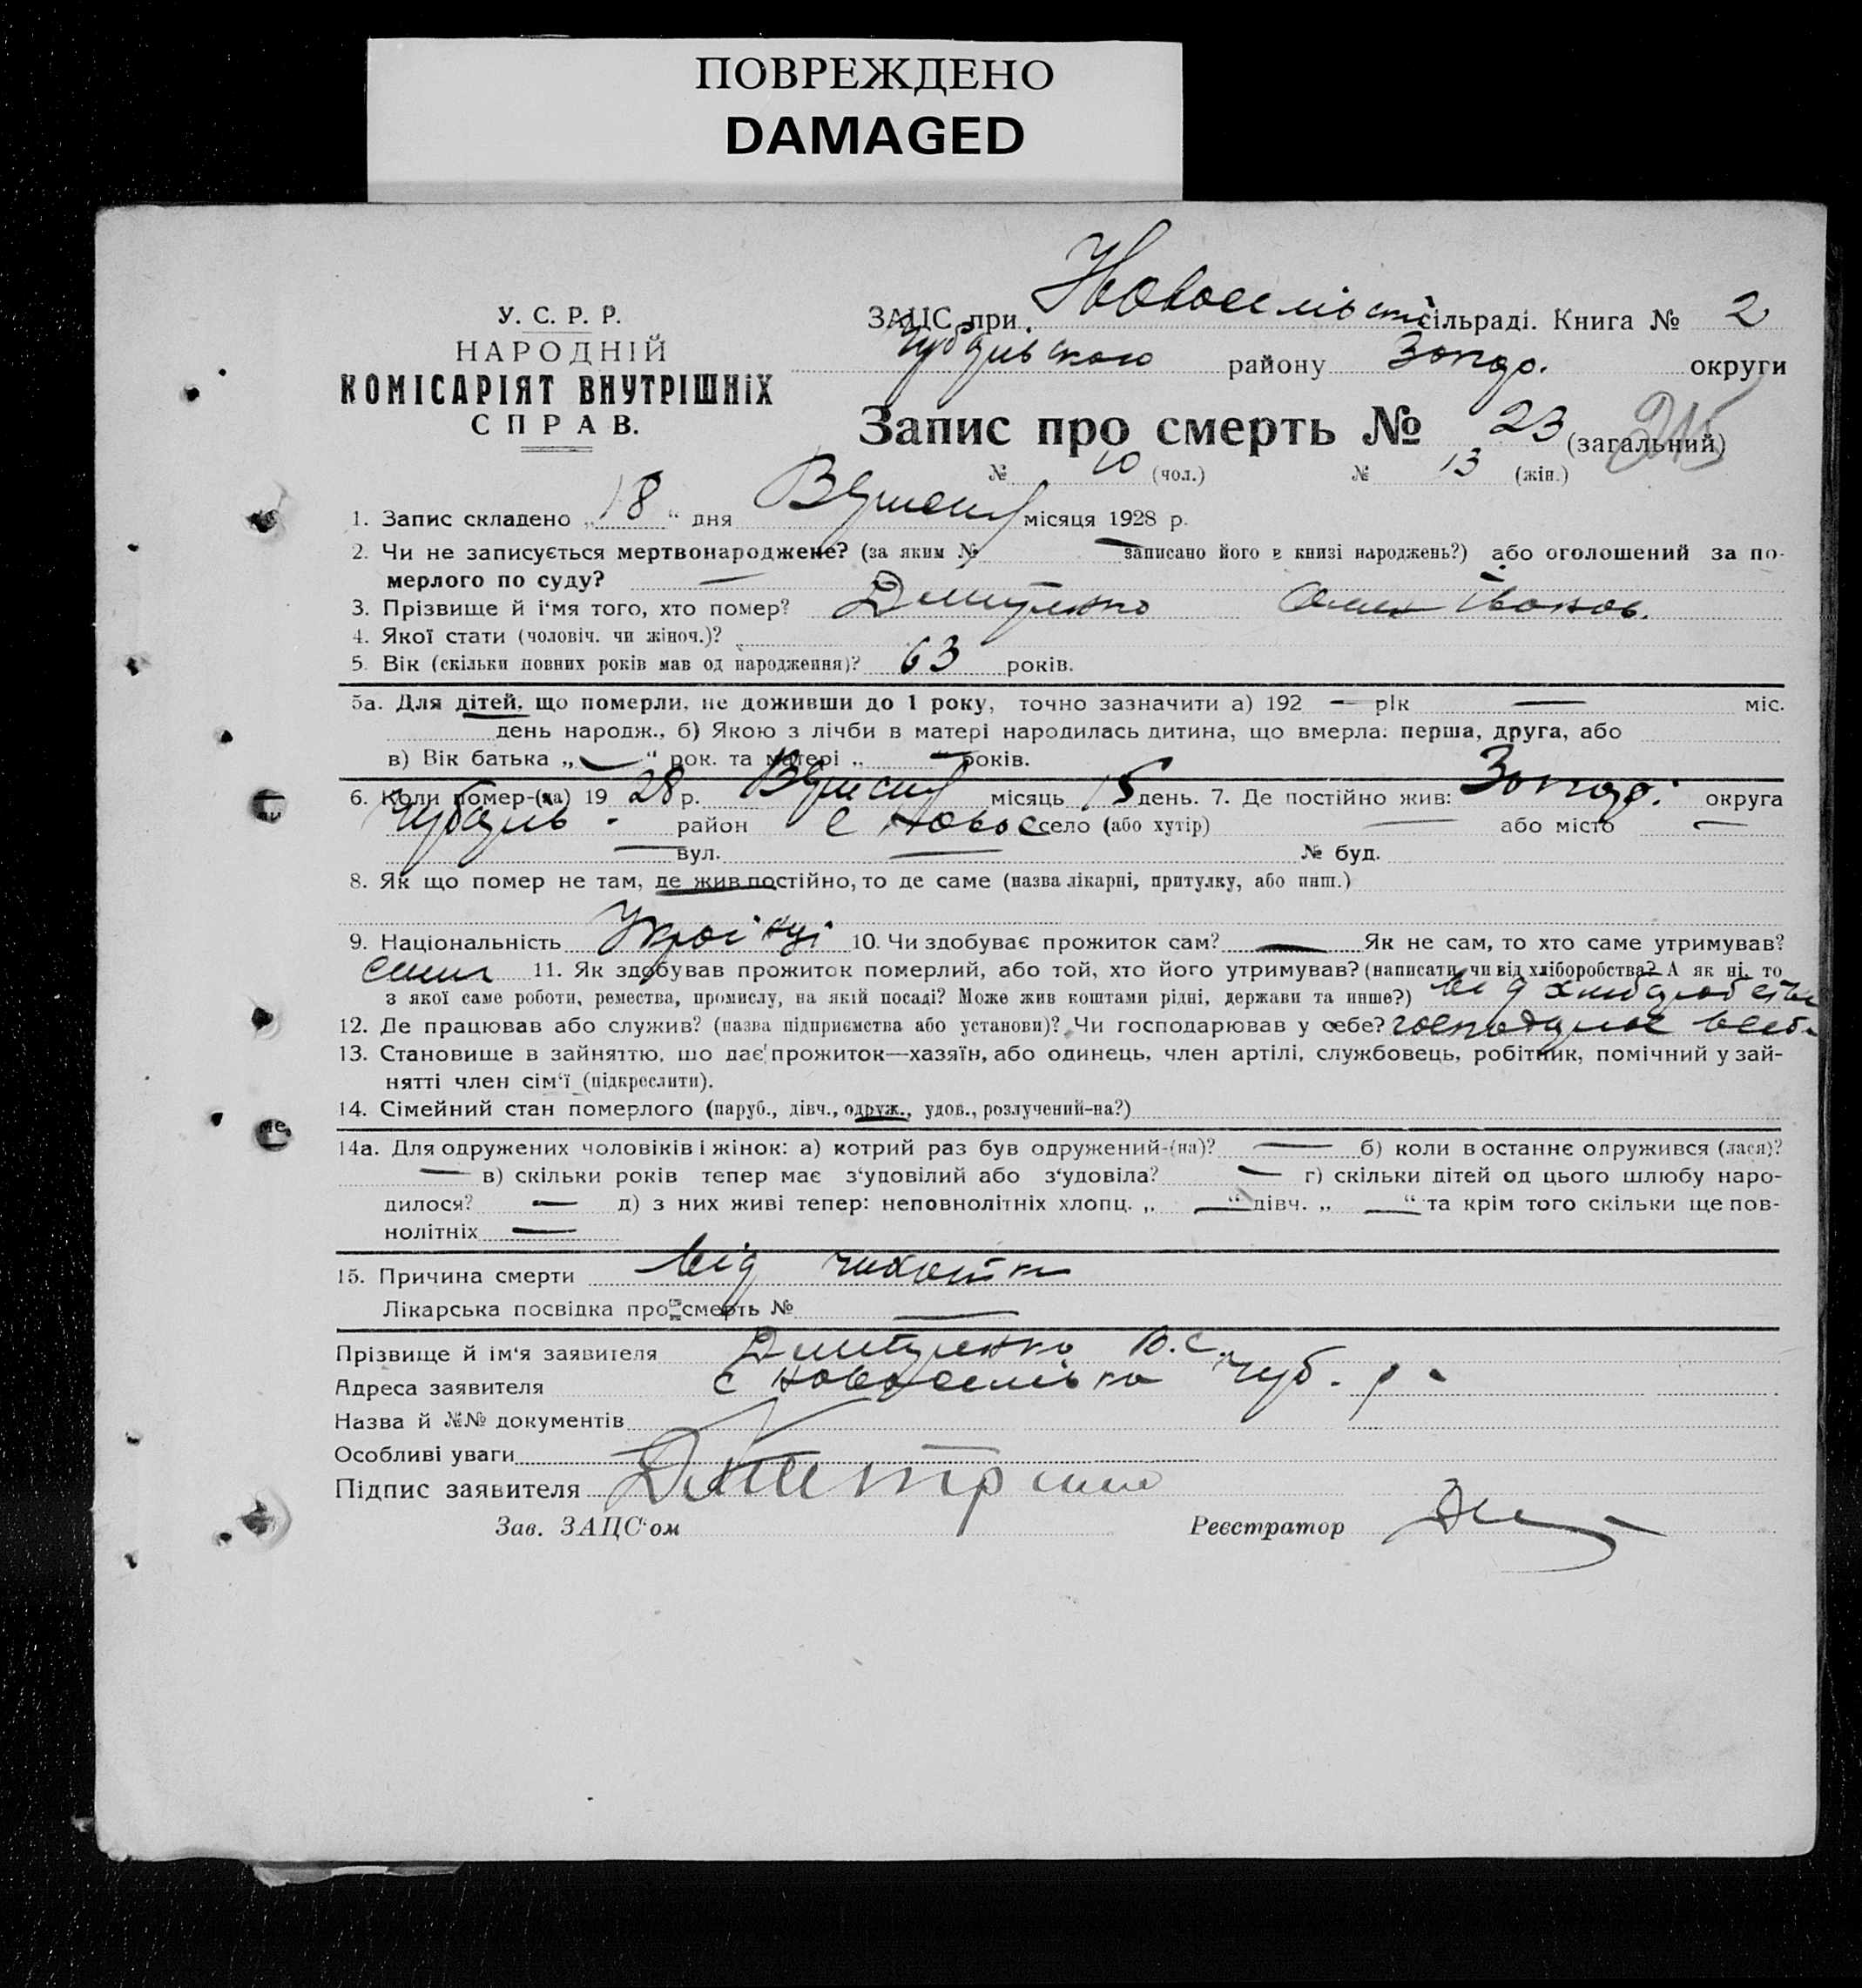 ПОВРЕЖДЕНО
DAMAGED
У. С. Р. Р.
НАРОДНІЙ
КОМІСАРІЯТ ВНУТРІШНІХ
СПРАВ.
ЗАЦС при сільраді. Книга № 2
району округи
Запис про смерть № 23 (загальний) 215
№ 10 (чол.) № 13 (жін.)
1. Запис складено „18“ дня місяця 1928 р.
2. Чи не записується мертвонароджене? (за яким № — записано його в книзі народжень?) або оголошений за по-
мерлого по суду? —
3. Прізвище й і'мя того, хто помер? Іванов.
4. Якої стати (чоловіч. чи жіноч.)?
5. Вік (скільки повних років мав од народження)? 63 років.
5а. Для дітей, що померли, не доживши до 1 року, точно зазначити а) 192 — рік — міс.
день народж., б) Якою з лічби в матері народилась дитина, що вмерла: перша, друга, або
в) Вік батька „—“ рок. та матері „ —“ років.
6. Коли помер-(ла) 19 28 р. місяць 15 день. 7. Де постійно жив: округа
район с Новос село (або хутір) — або місто —
— вул. — № буд.
8. Як що помер не там, де жив постійно, то де саме (назва лікарні, притулку, або инш.)
9. Національність Украінці 10. Чи здобуває прожиток сам? — Як не сам, то хто саме утримував?
11. Як здобував прожиток померлий, або той, хто його утримував? (написати, чи від хліборобства? А як ні, то
з якої саме роботи, ремества, промислу, на якій посаді? Може жив коштами рідні, держави та инше?) від
12. Де працював або служив? (назва підприємства або установи)? Чи господарював у себе?
13. Становище в зайняттю, що дає прожиток—хазяїн, або одинець, член артілі, службовець, робітник, помічний у зай-
нятті член сім'ї (підкреслити).
14. Сімейний стан померлого (паруб., дівч., одруж., удов., розлучений-на?)
14а. Для одружених чоловіків і жінок: а) котрий раз був одружений-(на)? — б) коли востаннє одружився (лася)?
— в) скільки років тепер має з'удовілий або з'удовіла? — г) скільки дітей од цього шлюбу наро-
дилося? — д) з них живі тепер: неповнолітніх хлопц. „ —“ дівч. „ —“ та крім того скільки ще пов-
нолітніх —
15. Причина смерти від чихотки
Лікарська посвідка про смерть № —
Прізвище й ім'я заявителя
Адреса заявителя с Новоселівка Чуб. р.
Назва й №№ документів
Особливі уваги
Підпис заявителя
Зав. ЗАЦС'ом Реєстратор